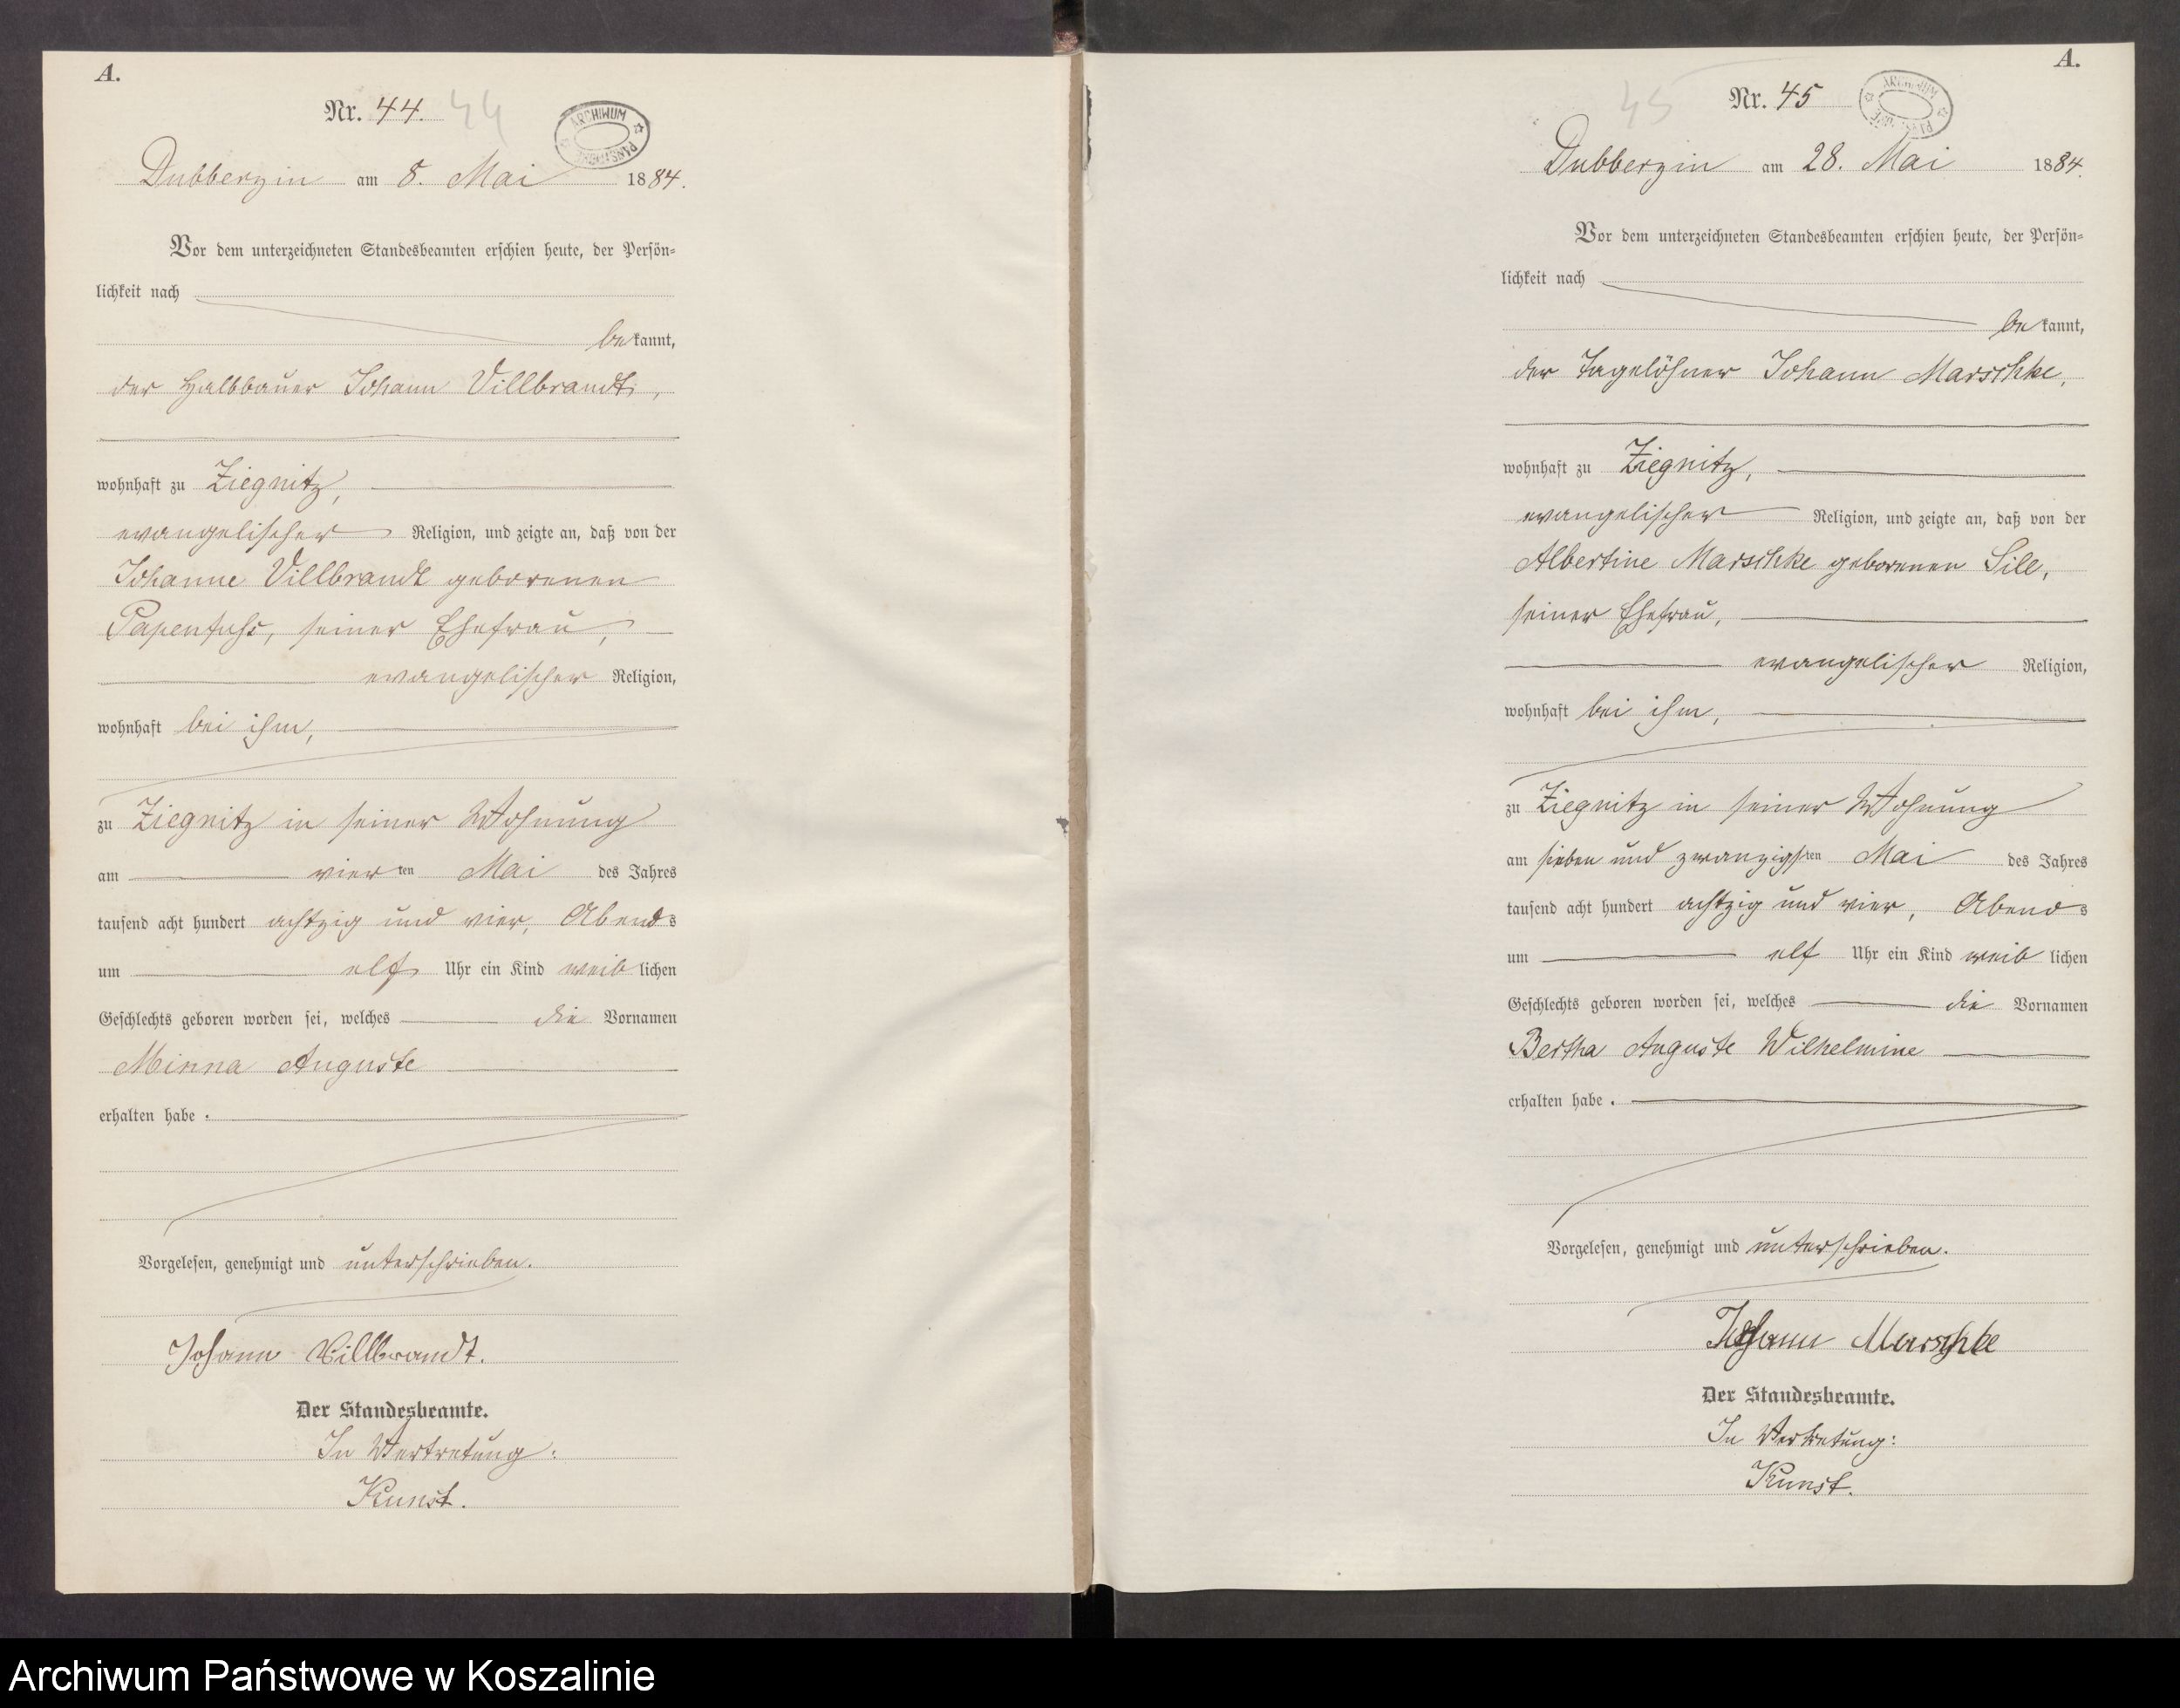 A.
Nr. 44. 44
ARCHIWUM
Dubberzin am 8. Mai 1884.
Vor dem unterzeichneten Standesbeamten erschien heute, der Persön-
lichkeit nach
bekannt,
der Halbbauer Johann Villbrandt,
wohnhaft zu Ziegnitz,
evangelischer Religion, und zeigte an, daß von der
Johanne Villbrandt geborenen
Papenfuhs, seiner Ehefrau,
evangelischer Religion,
wohnhaft bei ihm,
zu Ziegnitz in seiner Wohnung
am vierten Mai des Jahres
tausend acht hundert achtzig und vier, Abends
um elf Uhr ein Kind weiblichen
Geschlechts geboren worden sei, welches die Vornamen
Minna Auguste
erhalten habe.
Vorgelesen, genehmigt und unterschrieben.
Johann Villbrandt.
Der Standesbeamte.
In Vertretung:
Kunst.
A.
45 Nr. 45
ARCHIWUM
Dubberzin am 28. Mai 1884.
Vor dem unterzeichneten Standesbeamten erschien heute, der Persön-
lichkeit nach
bekannt,
der Tagelöhner Johann Marschke,
wohnhaft zu Ziegnitz,
evangelischer Religion, und zeigte an, daß von der
Albertine Marschke geborenen Sill,
seiner Ehefrau,
evangelischer Religion,
wohnhaft bei ihm,
zu Ziegnitz in seiner Wohnung
am sieben und zwanzigsten Mai des Jahres
tausend acht hundert achtzig und vier, Abends
um elf Uhr ein Kind weiblichen
Geschlechts geboren worden sei, welches die Vornamen
Bertha Auguste Wilhelmine
erhalten habe.
Vorgelesen, genehmigt und unterschrieben.
Johann Marschke
Der Standesbeamte.
In Vertretung:
Kunst.
Archiwum Państwowe w Koszalinie